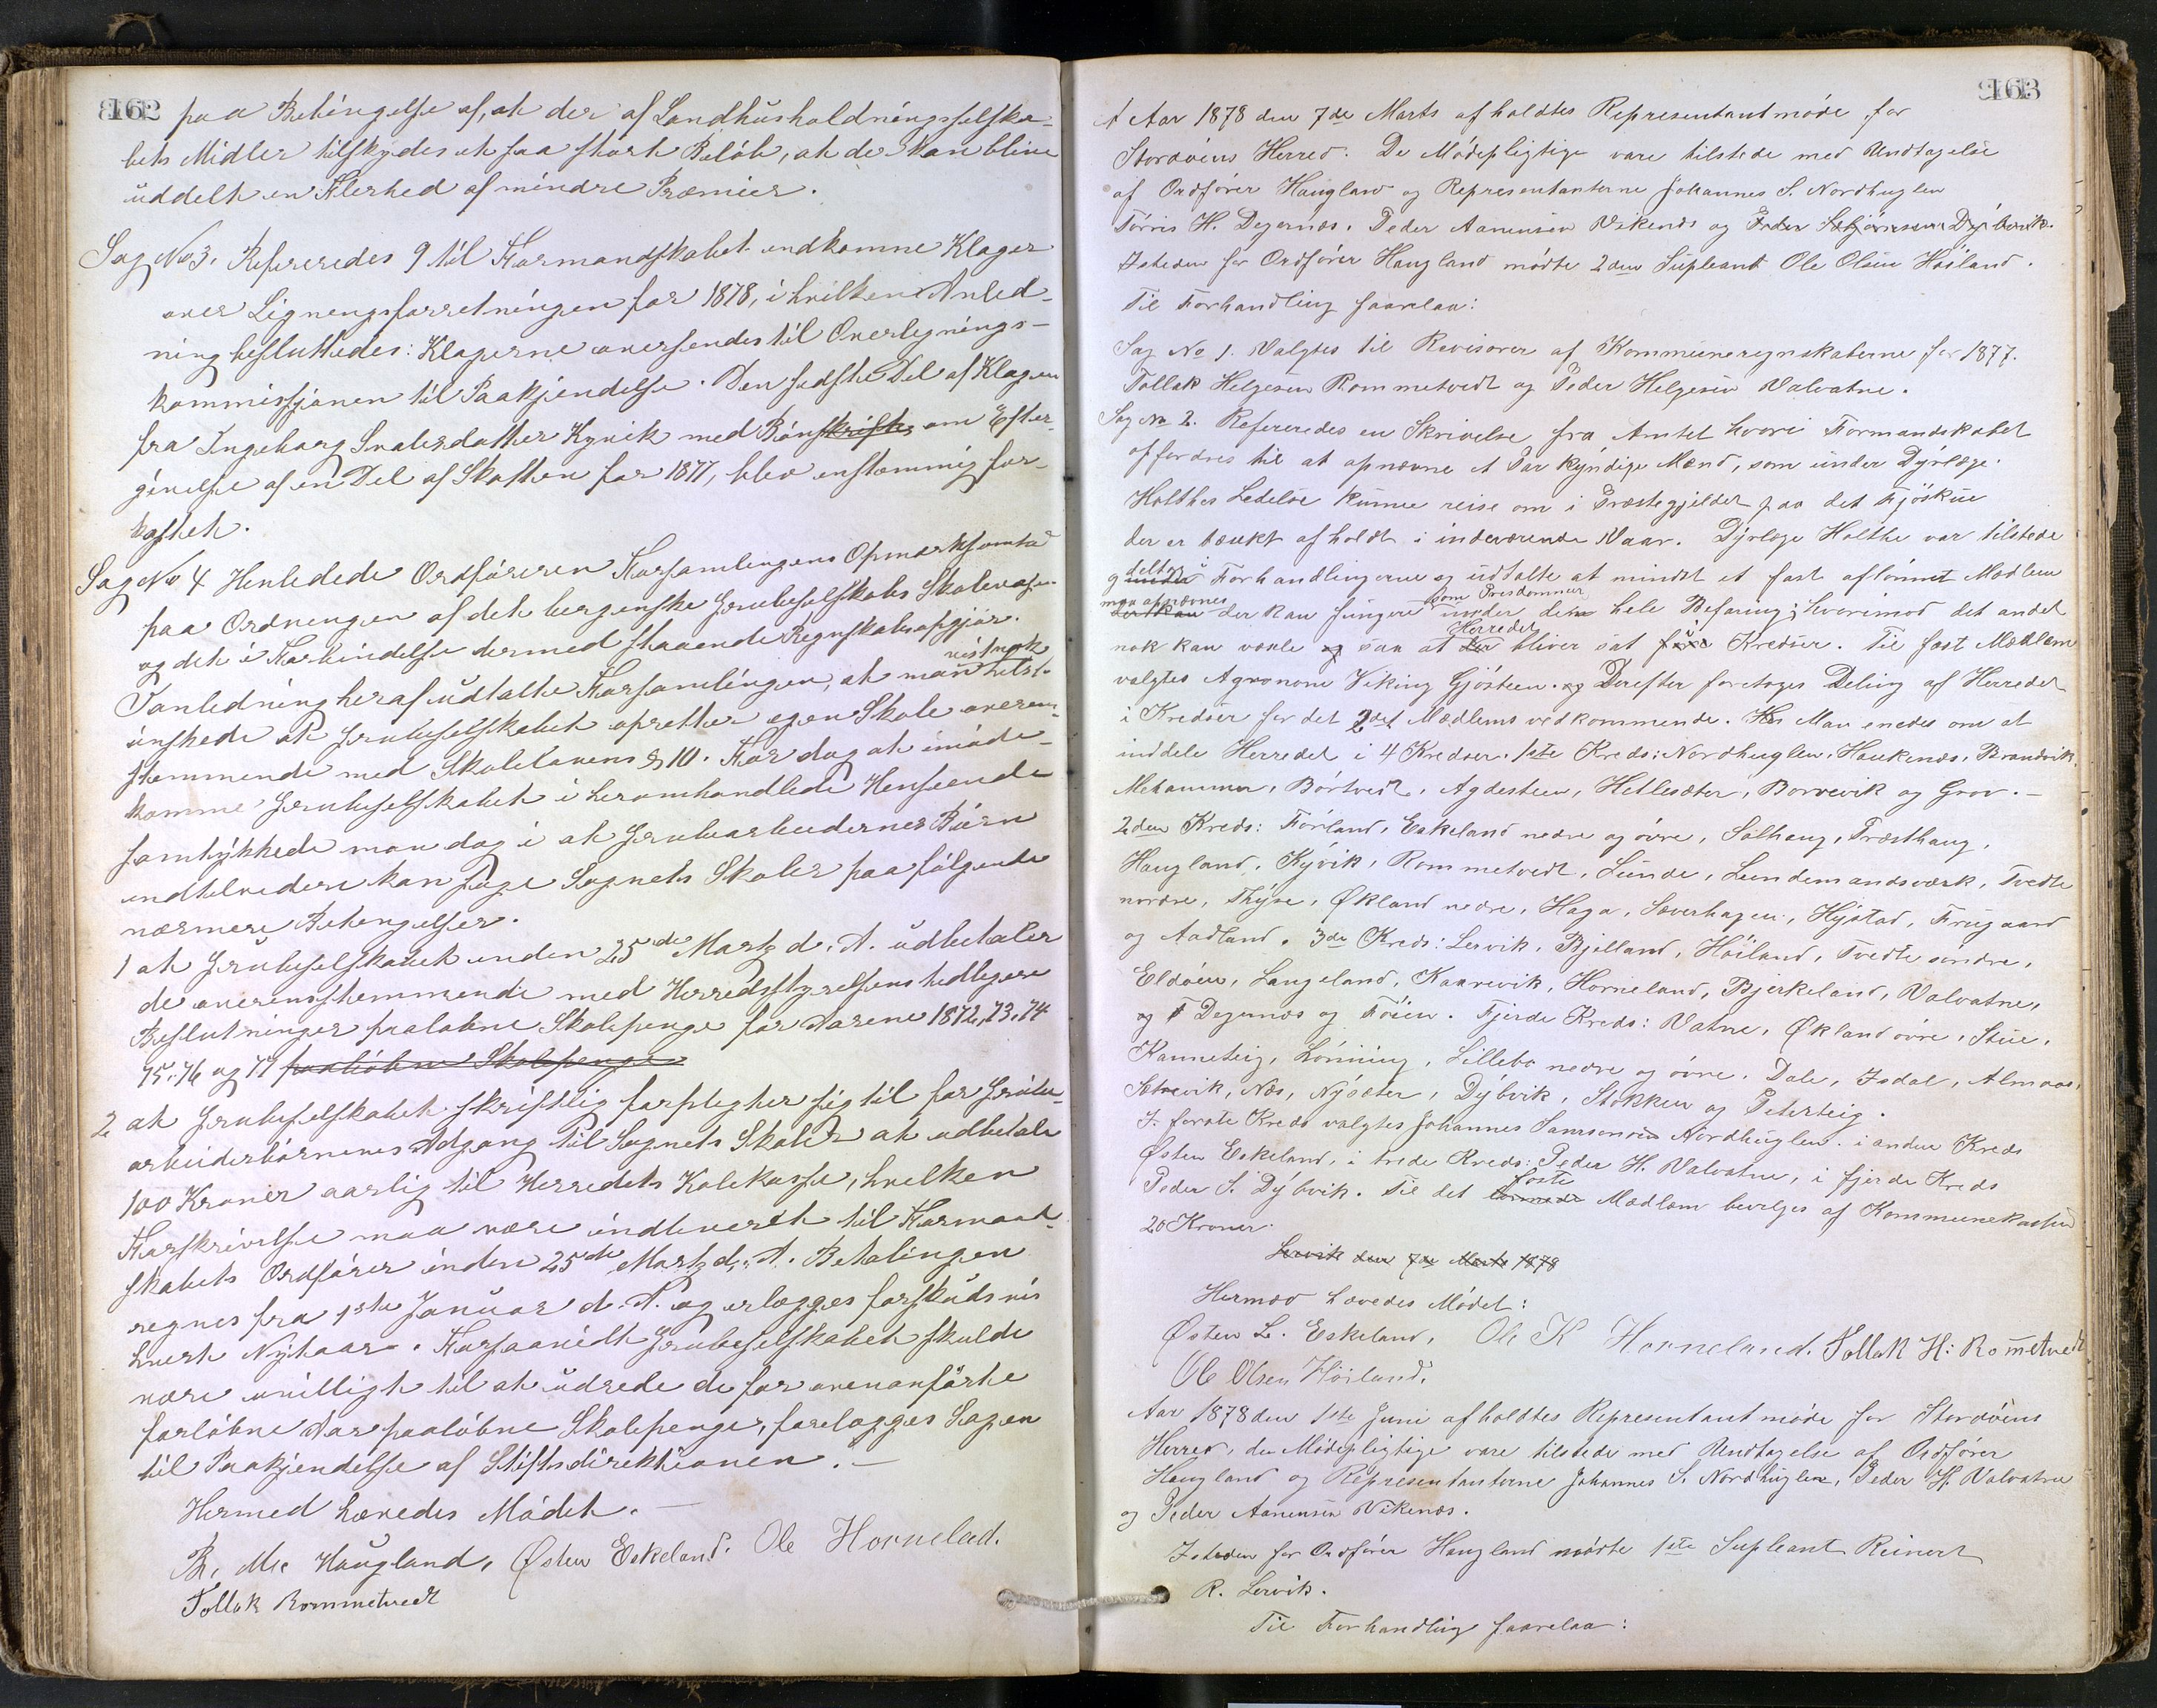 162
paa Betingelse af, at der af Landhusholdningsselska-
bets Midler tilskydes et saa stort Beløb, at der kan blive
uddelt en Flerhed af mindre Præmier.
Sag No 3. Refereredes 9 til Formandskabet indkomne Klager
over Ligningsforretningen for 1878, i hvilken Anled-
ning besluttedes: Klagerne oversendes til Overlignings-
kommissjonen til Paakjendelse. Den sidste Del af Klagen
fra Ingeborg Knutsdatter Kyvik med Bønskrift om Efter-
givelse af en Del af Skatten for 1877, blev enstemmig for-
kastet.
Sag No 4 Henledede Ordføreren Forsamlingens Opmærksomhed
paa Ordningen af det bergenske Grubeselskabs Skolevæsen
og det i Forbindelse dermed staaende Regnskabsopgjør.
vistnok
I anledning heraf udtalte Forsamlingen, at man helst
ønskede at Grubeselskabet opretter egen Skole overens-
stemmende med Skolelovens § 10. For dog at imøde-
komme Grubeselskabet i heromhandlede Henseende
samtykkede man dog i at Grubearbeidernes Børn
indtilvidere kan søge Sognets Skoler paa følgende
nærmere Betingelser.
1 at Grubeselskabet inden 25de Marts d. A. udbetaler
de overensstemmende med Herredsstyrelsens tidligere
Beslutninger paaløbne Skolepenge for Aarene 1872, 73, 74
75. 76 og 77 paaløbne Skolepenge
2 at Grubeselskabet skriftlig forpligter sig til for Grube-
arbeiderbørnenes Adgang til Sognets Skoler at udbetale
100 Kroner aarlig til Herredets Kolekasse, hvilken
Forskrivelse maa være indleveret til Formand-
skabets Ordfører inden 25de Marts d. A. Betalingen
regnes fra 1ste Januar d. A. og erlægges forskudsvis
hvert Nyttaar. Forsaavidt Grubeselskabet skulde
være uvilligt til at udrede de for ovenanførte
forløbne Aar paaløbne Skolepenge, forelægges Sagen
til Paakjendelse af Stiftsdirektionen.-
Hermed hævedes Mødet.-
B. M. Haugland, Østen Eskeland. Ole Hornelad.
Tollak Rommetvedt
163
Aar 1878 den 7de Marts afholdtes Representantmøde for
Stordøens Herred. De Mødepligtige vare tilstede med Undtagelse
af Ordfører Haugland og Representanterne Johannes S. Nordhuglen
Tørris H. Degernæs. Peder Aanensen Vikenæs og Peder Dybvik.
Isteden for Ordfører Haugland mødte 2den Supleant Ole Olsen Høiland.
Til Forhandling foarelaa:
Sag No 1. Valgtes til Revisorer af Kommuneregnskaberne for 1877.
Tollak Helgesen Rommetvedt og Peder Helgesen Valvatne.
Sag No 2. Refereredes en Skrivelse fra Amtet hvori Formandskabet
opfordres til at opnævne et Par kyndige Mænd, som under Dyrlæge
Holthes Ledelse kunne reise om i Præstegjeldet paa det Fjøskue
der er tænkt afholdt i indeværende Vaar. Dyrlæge Holthe var tilstede
deltog i
og under Forhandlingerne og udtalte at mindst et fast aflønnet Medlem
maa opnævnes som Prisdommer
der kan fungere under den hele Befaring; hvorimod det andet
Herredet i
nok kan vexle og saa at der bliver sat Kredser. Til fast Medlem
valgtes Agronom Viking Gjøsteen. og Derefter foretoges Deling af Herredet
i Kredser for det 2det Medlems vedkommende. Man enedes om at
inddele Herredet i 4 Kredser. 1ste Kreds: Nordhuglen, Haukenæs, Brandvik,
Mehammer, Børtvedt, Agdesteen, Hetlesæter, Borrevik og Grov.-
2den Kreds: Førland, Eskeland nedre og øvre, Solhaug, Præsthaug,
Haugland, Kyvik, Rommetvedt, Lunde, Lundemandsværk, Tvedte
nordre, Thyse, Økland nedre, Haga, Sæverhagen, Hystad, Frugaard
og Aadland. 3de Kreds: Lervik, Bjelland, Høiland, Tvedte søndre,
Eldøen, Langeland, Kaarevik, Horneland, Bjerkeland, Valvatne,
og Degernæs og Føien. Fjerde Kreds: Vatne, Økland øvre, Stue,
Kanneteig, Lønning, Lillebø nedre og øvre, Dale, Isdal, Almaas,
Sætrevik, Næs, Nysæter, Dybvik, Stokken og Peterteig.
I første Kreds valgtes Johannes Samsonsen Nordhuglen. i anden Kreds
Østen Eskeland, i tredie Kreds: Peder H. Valvatne, i fjerde Kreds
faste
Peder S. Dybvik. Til det Medlem bevilges af Kommunekassen
20 Kroner.
Lervik den 7de Marts 1878
Hermed hævedes Mødet:
Østen L. Eskeland, Ole K Horneland. Tollak H: Rom̅etvedt
Ole Olsen Høiland.
Aar 1878 den 1ste Juni afholdtes Representantmøde for Stordøens
Herred, de Mødepligtige vare tilstede med Undtagelse af Ordfører
Haugland og Representanterne Johannes S. Nordhuglen, Peder H. Valvatne
og Peder Aanensen Vikenæs.
Isteden for Ordfører Haugland mødte 1ste Supleant Reinert
R. Lervik.
Til Forhandling foarelaa: